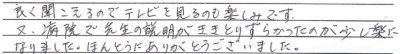 良く聞こえるのでテレビを見るのも楽しみです。
又、病院で先生の説明がききとりずらかったのが少し楽に
なりました。ほんとうにありがとうございました。